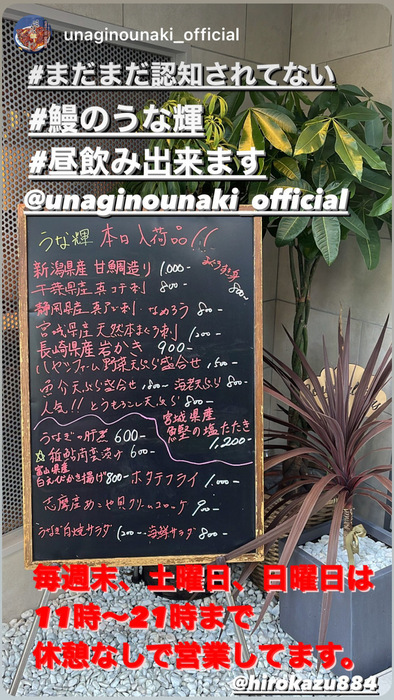 unaginounaki_official
#まだまだ認知されてない
#鰻のうな輝
#昼飲み出来ます
@unaginounaki_official
うな輝 本日入荷品!!
新潟県産 甘鯛造り 1,000-
800-
千葉県産 真コチ刺 800-
静岡県産 真アジ刺 なめろう 800-
宮城県産天然本まぐろ刺 1,200-
長崎県産岩かき 900-
野菜天ぷら盛合せ 1,500-
魚介天ぷら盛合せ 1,800- 海老天ぷら 800-
人気!! とうもろこし天ぷら 800-
宮城県産
鰹の塩たたき
1,200-
うなぎの肝煮 600-
稚鮎南蛮漬け 600-
富山県産
白えびかき揚げ 800- ホタテフライ 1,000-
志摩産あこや貝クリームコロッケ 900-
うなぎ白焼サラダ 1,200- 海鮮サラダ 800-
毎週末、土曜日、日曜日は
11時〜21時まで
休憩なしで営業してます。
@hirokazu884